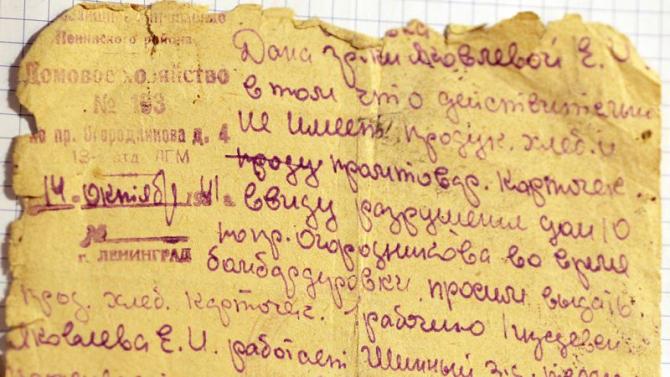 Ленинского района
Домовое хозяйство
№ 193
по пр. Огородникова д. 4
13-е отд. ЛГМ
14 октября 1941 г.
№
г. ЛЕНИНГРАД
Дана гр-ки Яковлевой Е. И
в том что действительно
не имеет продук. хлеб. и
проду промтовар. карточек
ввиду разрушения дом 10
по пр. Огородникова во время
бомбардировки, просим выдать
прод. хлеб. карточек.
рабочию
Яковлева Е. И. работает Шинный